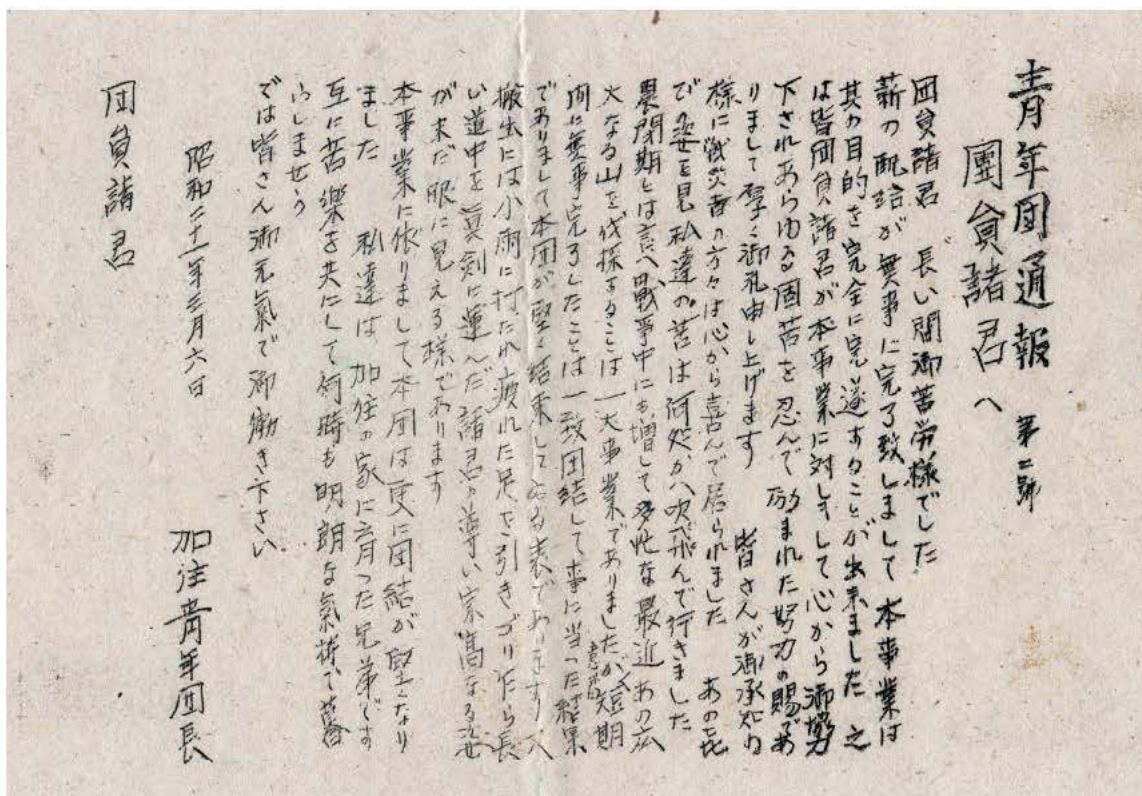 青年団通報 第二号
團員諸君へ
団員諸君 長い間御苦労様でした
薪の配給が無事に完了致しまして 本事業は
其の目的を完全に完遂することが出来ました 之
は皆団員諸君が本事業に対しまして心から御協力
下されあらゆる困苦を忍んで励まれた努力の賜であ
りまして厚く御礼申し上げます 皆さんが御承知の
様に戦災者の方々は心から喜んで居られました あの喜
びの姿を見私達の苦は何処かへ吹飛んで行きました
農閑期とは言へ戦事中にも増して多忙な最近あの広
大なる山を伐採することは一大事業でありましたが短期
間に無事完了したことは一致団結して事に当った結果
でありまして本団が堅く結束してゐる表であります
搬出には小雨に打たれ疲れた足で引きずり乍ら長
い道中を真剣に運んだ諸君の尊い崇高なる姿
が未だ眼に見える様であります
本事業に依りまして本団は更に団結が堅くなり
ました 私達は加住の家に育った兄弟です
互に苦楽を共にして何時も明朗な気持で暮
らしませう
では皆さん御元氣で御働き下さい
昭和二十一年三月六日
加住青年団長
団員諸君